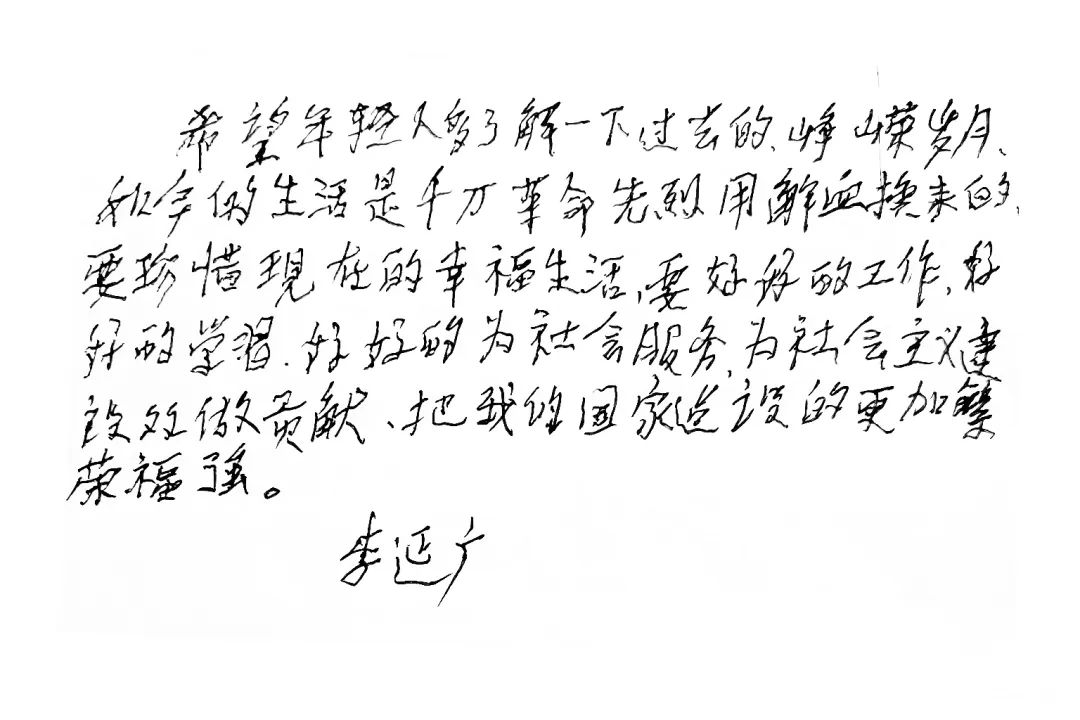 希望年轻人多了解一下过去的、峥嵘岁月、
如今的生活是千万革命先烈用鲜血换来的、
要珍惜现在的幸福生活、要好好的工作、好
好的学习、好好的为社会服务、为社会主义建
设多做贡献、把我们国家造设的更加繁
荣福强。
李延广